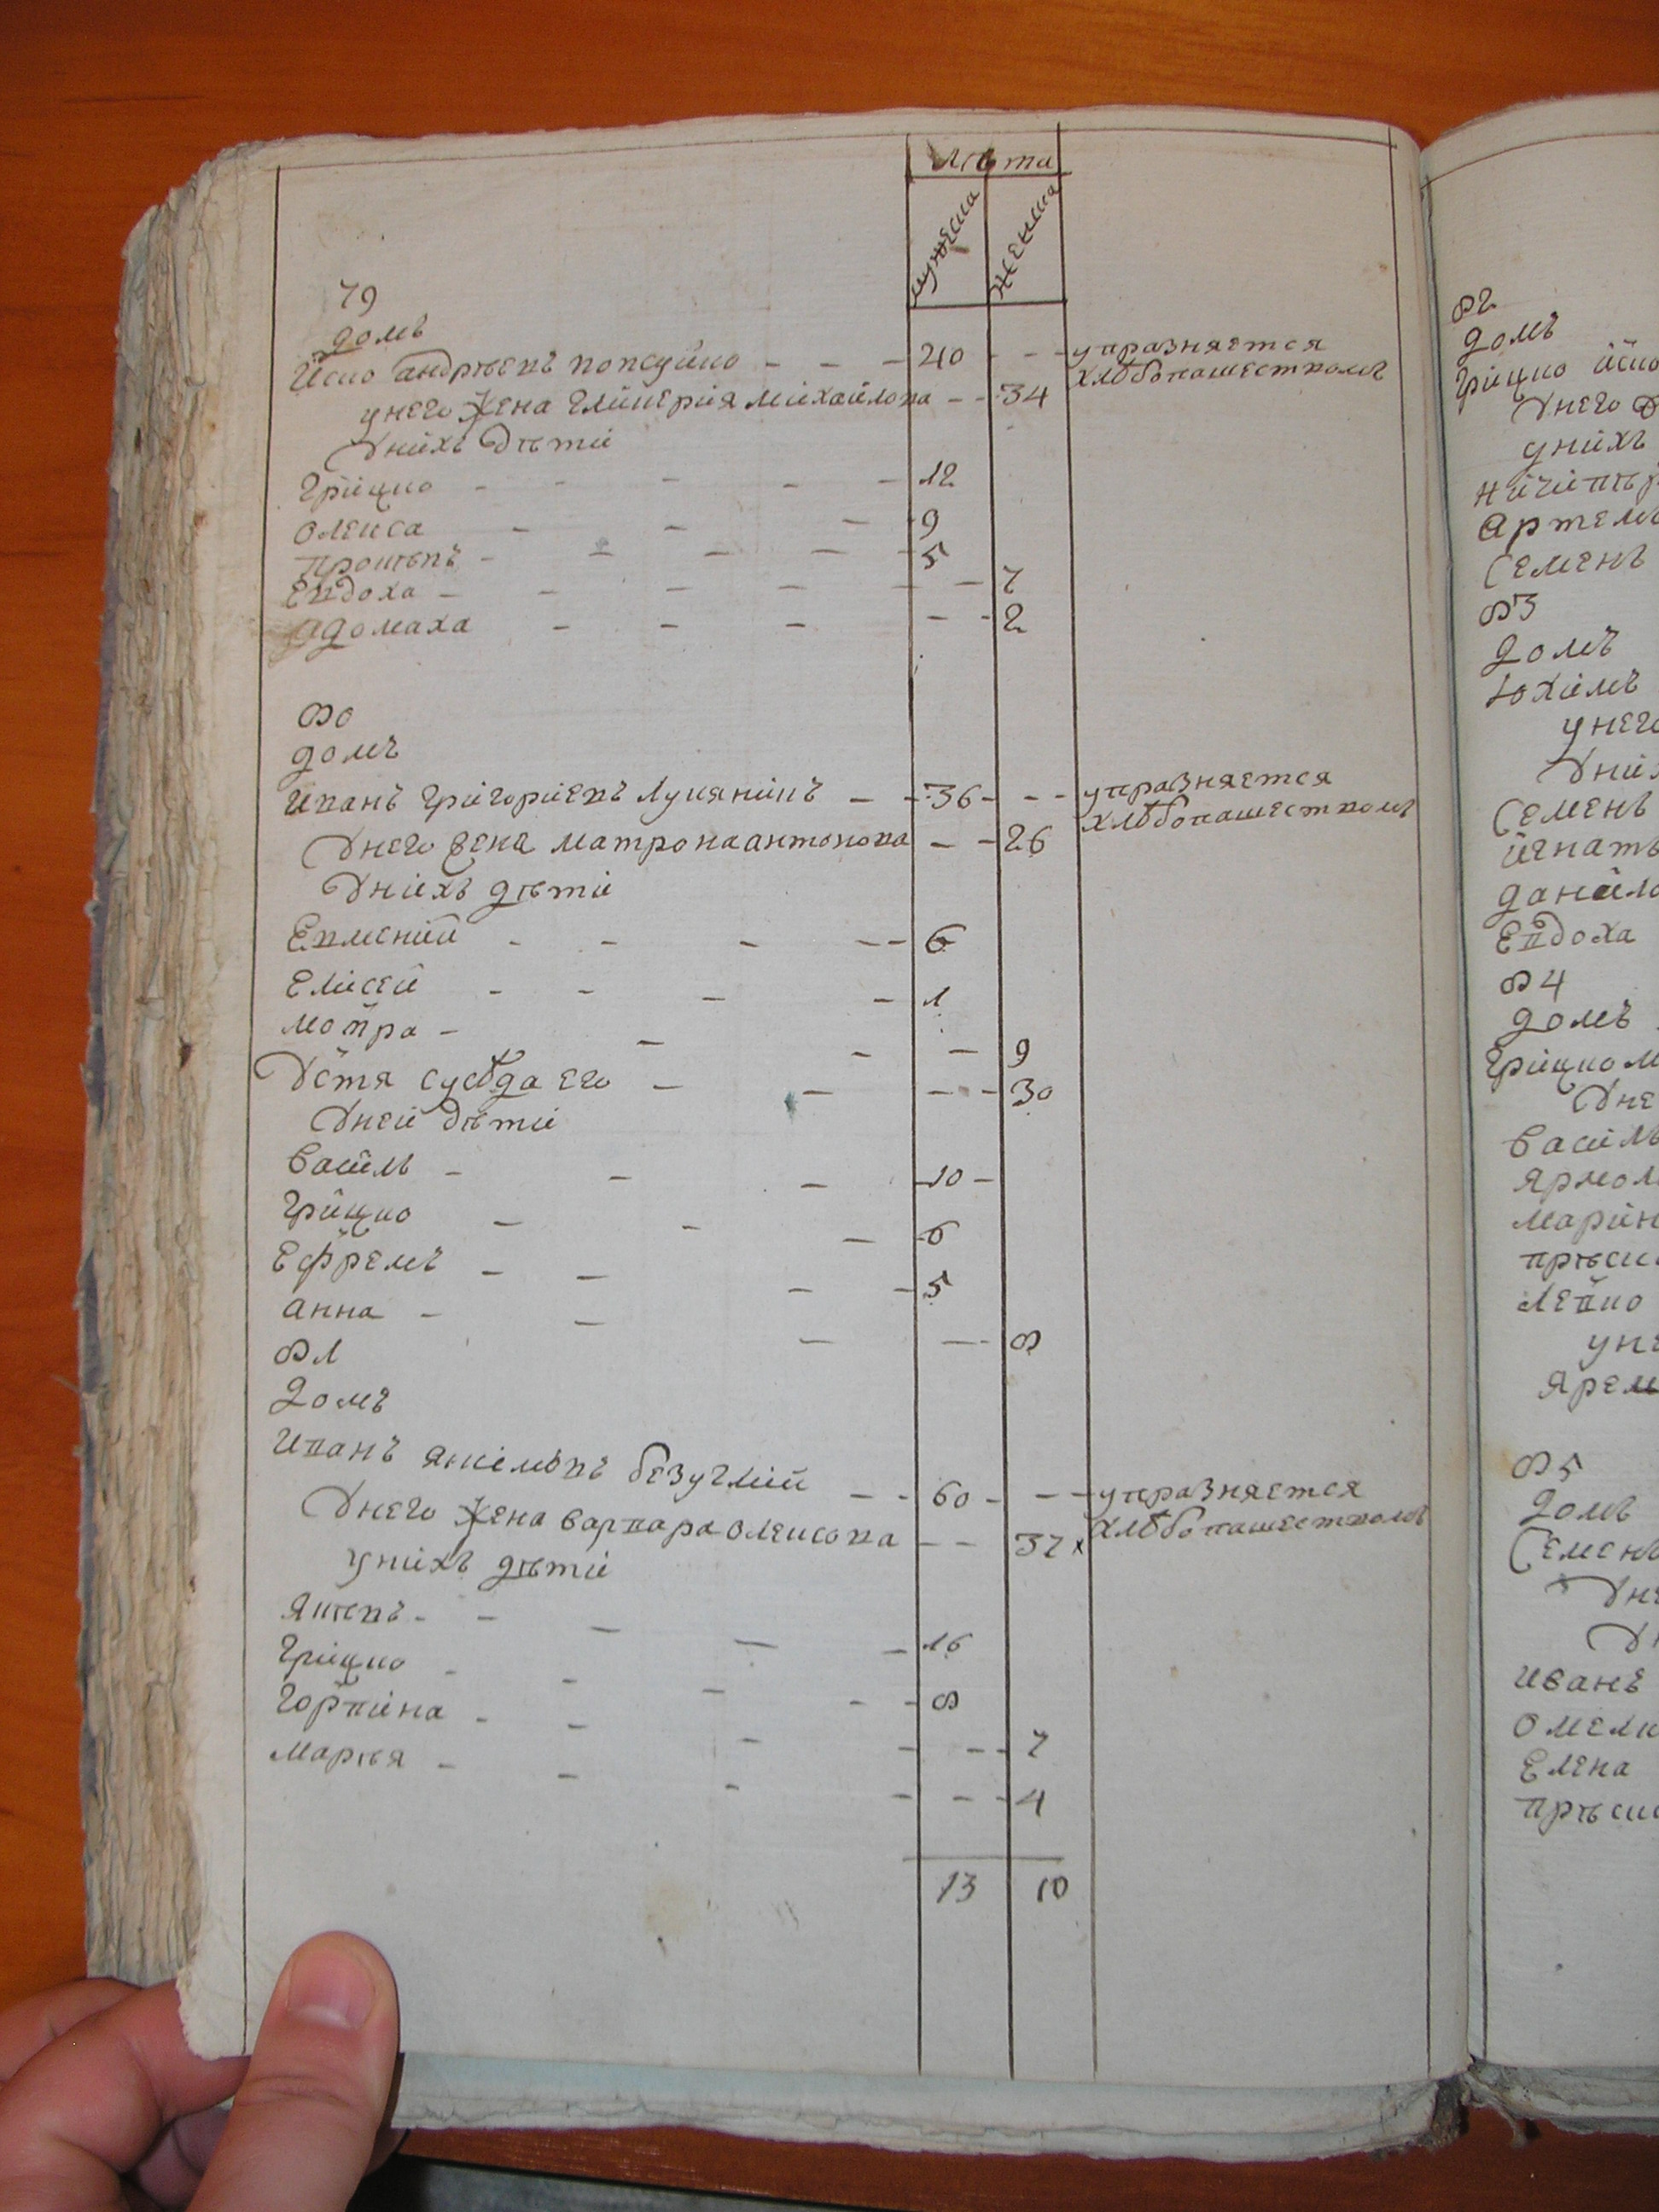 Лѣта
мужеска
женска
79
домъ
Йско андрѣевъ 40 упразняется
хлѣбопашествомъ
унего жена Гликерїя михайлова 34
Униїхъ дѣти
Грицко 12
Олекса 9
Прокѣпъ 5
Евдоха 7
Адомаха 2
80
домъ
Иванъ Григорїевъ Лукянинъ 36 упразняется
хлѣбопашествомъ
Унего жена матрона антонова 26
Унихъ дѣти
Евменїй 6
Елисей 1
мотра 9
Устя сусѣда его 30
Уней дѣти
Василь 10
Грицко 6
Ефремъ 5
анна 8
81
домъ
Иванъ якимовъ безуглий 60 упразняется
хлѣбопашествомъ
Унего жена варвара олексова 37 х
Унихъ дѣти
Якѣвъ 16
Грицко 8
Горпина 7
Марѣя 4
13 10
82
домъ
Грицко йско
Унего
унихъ
Ничипѣр
Артемъ
Семенъ
83
домъ
Юхимъ
унего
Уних
Семенъ
йгнатъ
данило
Евдоха
84
домъ
Грицко м
Уне
Василь
Ярмол
Марин
Прѣск
Левко
уне
Ярем
85
домъ
Семенъ
Уне
У
Иванъ
Омелк
Елена
Прѣск